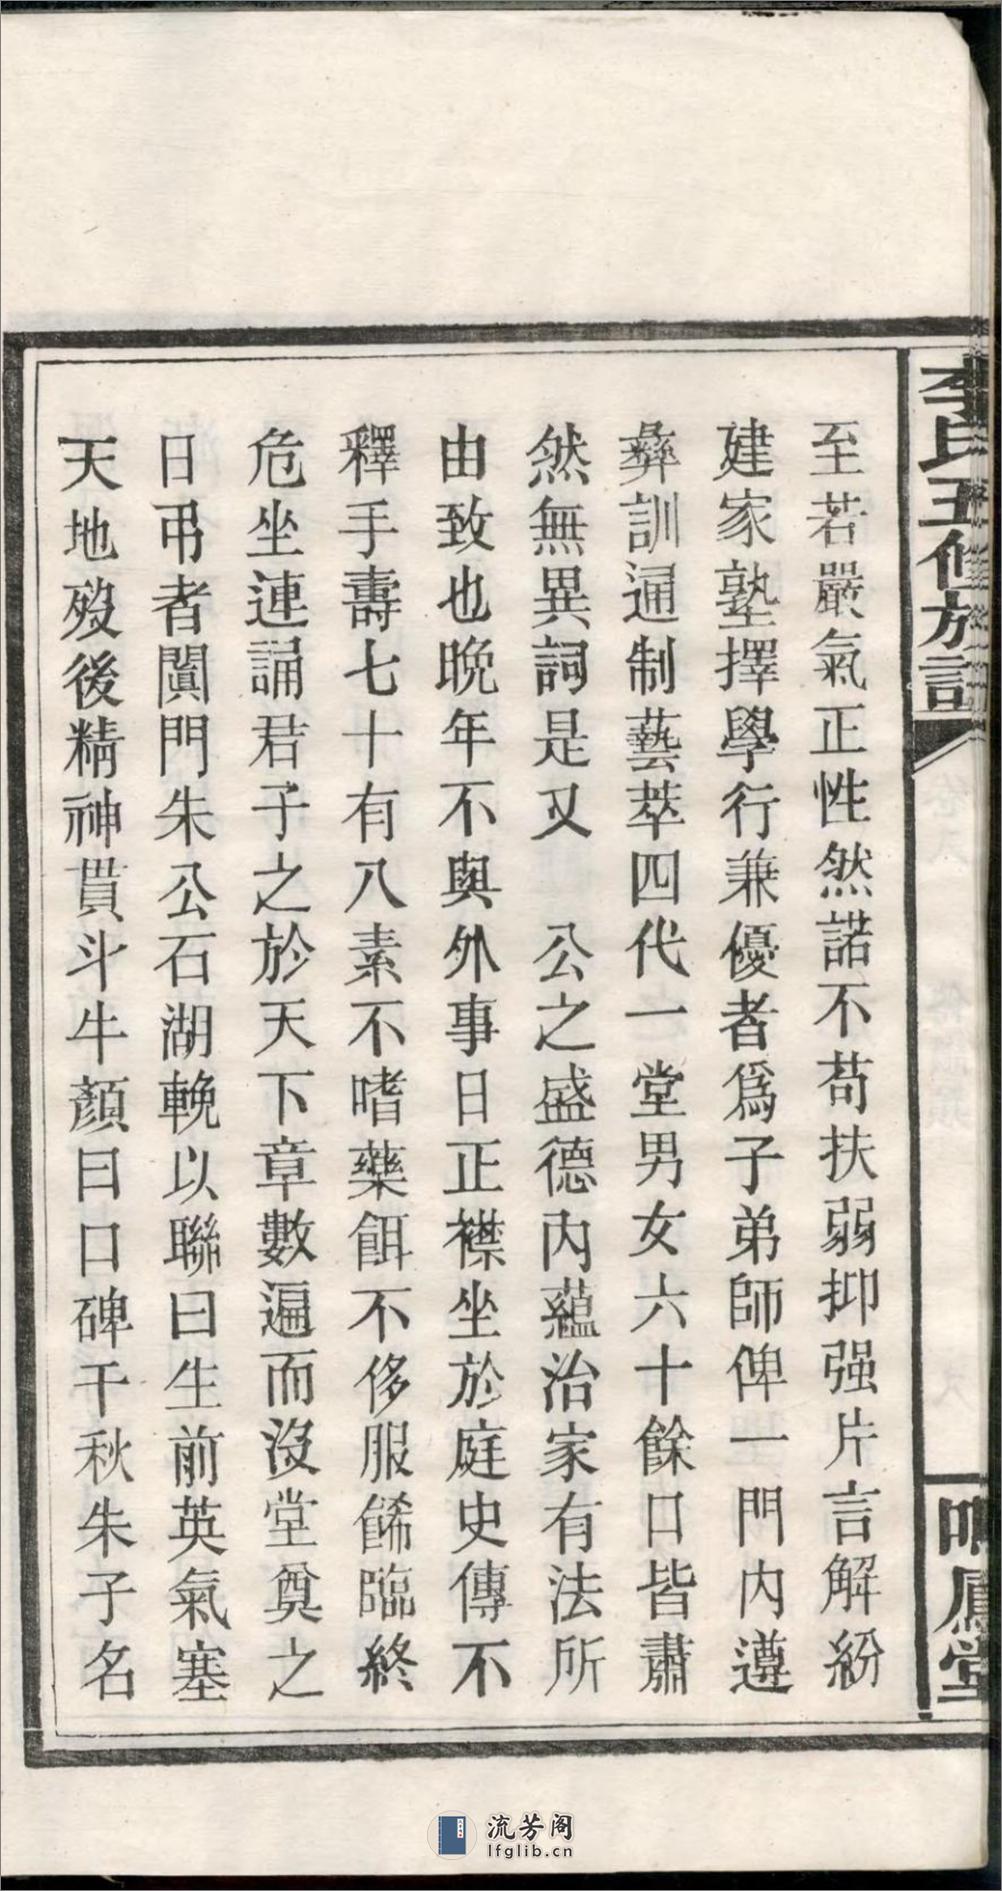 李氏五修族譜
鳴鳳堂
至若嚴氣正性然諾不苟扶弱抑强片言解紛
建家塾擇學行兼優者爲子弟師俾一門內遵
彝訓通制藝萃四代一堂男女六十餘口皆肅
然無異詞是又　公之盛德內蘊治家有法所
由致也晚年不與外事日正襟坐於庭史傳不
釋手壽七十有八素不嗜藥餌不侈服餙臨終
危坐連誦君子之於天下章數遍而沒堂奠之
日弔者闐門朱公石湖輓以聯曰生前英氣塞
天地歿後精神貫斗牛顏曰口碑千秋朱子名
流芳阁
lfglib.cn